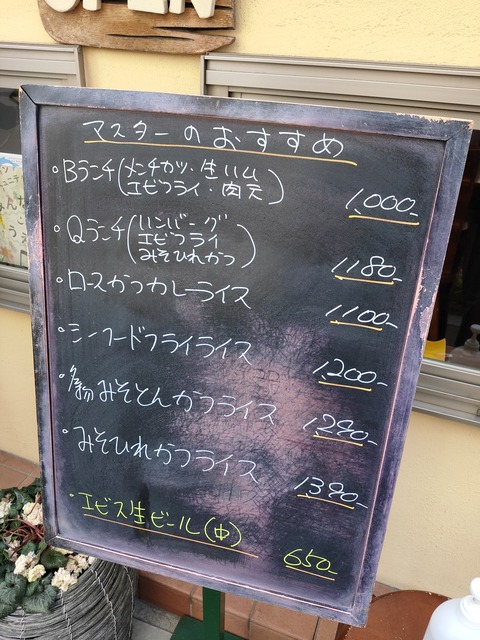 OPEN
マスターのおすすめ
・Bランチ(メンチカツ・生ハム
エビフライ・肉天) 1,000-
・Qランチ(ハンバーグ
エビフライ
みそひれかつ) 1180-
・ロースかつカレーライス 1100-
・シーフードフライライス 1200-
・名物みそとんかつライス 1280-
・みそひれかつライス 1380-
・エビス生ビール(中) 650-